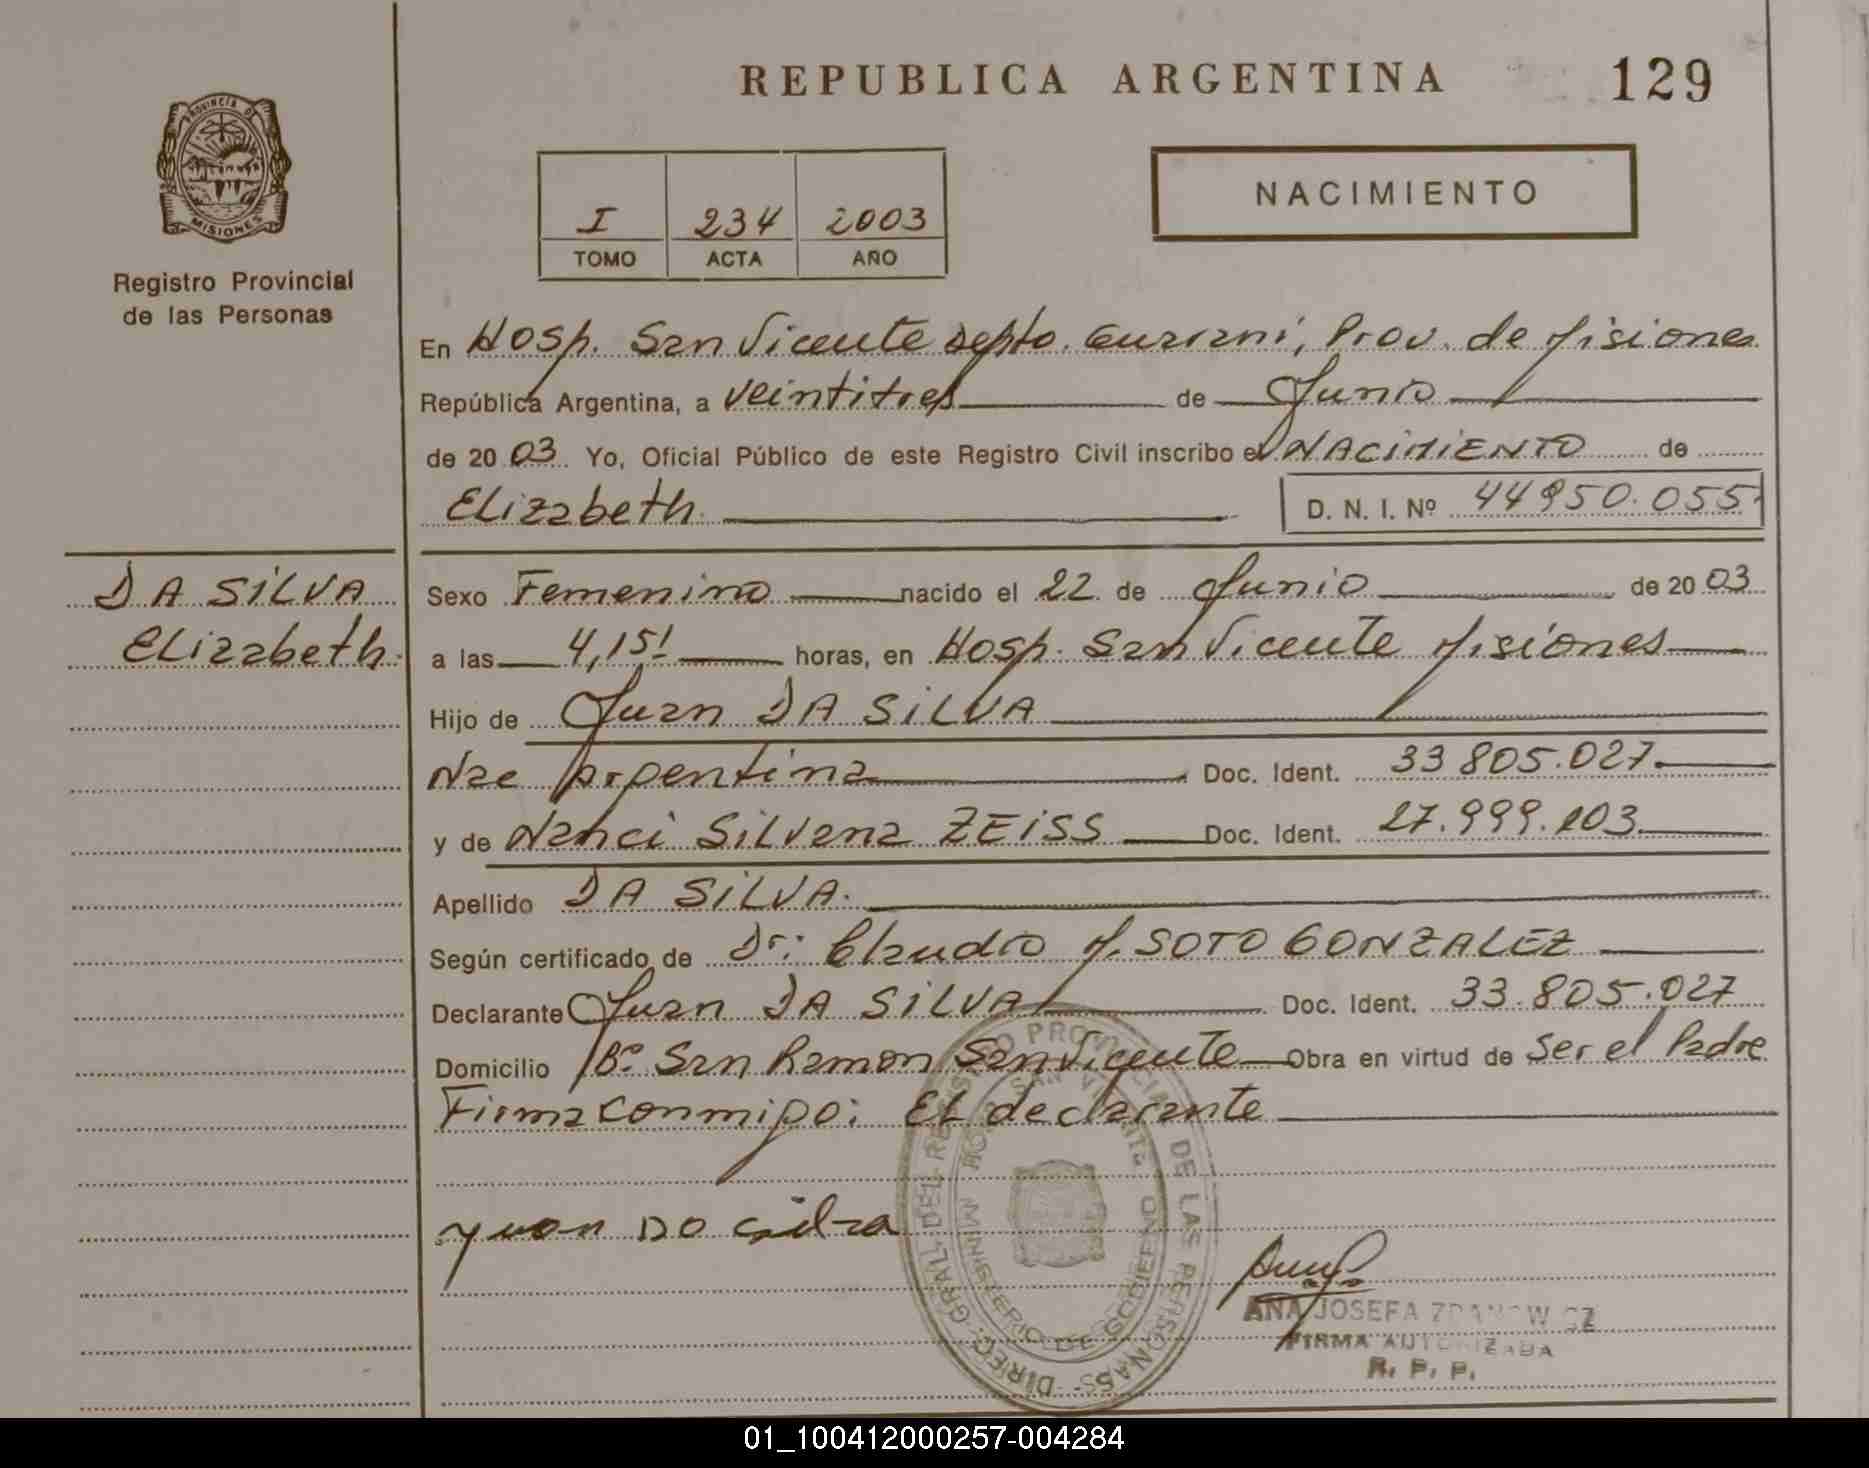 REPUBLICA ARGENTINA
129
PROVINCIA DE MISIONES
Registro Provincial
de las Personas
I 234 2003
TOMO ACTA AÑO
NACIMIENTO
En Hosp. San Vicente depto. Guarani, Prov. de Misiones
República Argentina, a veintitres de Junio
de 2003 Yo, Oficial Público de este Registro Civil inscribo el NACIMIENTO de
Elizabeth. D. N. I. Nº 44950.055.
DA SILVA
Elizabeth.
Sexo Femenino nacido el 22 de Junio de 2003
a las 4,15' horas, en Hosp. San Vicente Misiones
Hijo de Juan DA SILVA
Nac Argentina Doc. Ident. 33 805.027.
y de Nanci Silvana ZEISS Doc. Ident. 27.999.103.
Apellido DA SILVA.
Según certificado de Dr: Claudio M. SOTO GONZALEZ
Declarante Juan DA SILVA Doc. Ident. 33.805.027
Domicilio Bº San Ramon San Vicente Obra en virtud de Ser el Padre
Firma conmigo: El declarante
DIREC. GRAL. DEL REGISTRO PROVINCIAL DE LAS PERSONAS
MINISTERIO DE GOBIERNO
SAN VICENTE
ANA JOSEFA
FIRMA AUTORIZADA
R. P. P.
01_100412000257-004284